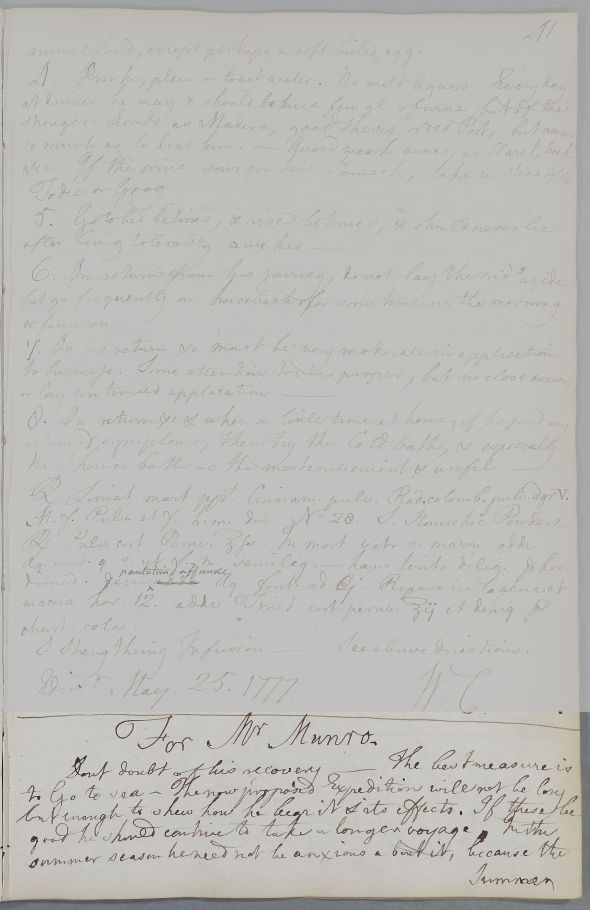 211
animal food, except perhaps a soft boiled egg.
4. Drink, plain or toast water. No malt liquors. Every day
at dinner he may & should take a few gl. of wine but of the
stronger kinds as Madeira, good sherry, red Port, but never
so much as to heat him. — Avoid weak wines, as Claret, hock
&c. If the wine sour in his stomach, take instead of it
Todie or Grog.
5. Go to bed betimes, & rise betimes, & should never lie
after being tolerably awaked —
6. On return from his journey, do not lay the rid.g aside
but go frequently on horseback for some time in the morning
or forenoon.
7. On his return &c must be very moderate in application
to business. Some attention to it is proper, but no close anxious
or long continued application —
8. On return &c & when a little time at home, if he find any
return of symptoms, then try the Cold bath, & especially
the shower bath as the most convenient & useful —
℞ Limat. mart. ppt. Cinnam. pulv. Rad. colomb. pulv. a gr V.
M. f. Pulv. et f. h. m. dos. No 20. S. Stomachic Powders.
℞ Pulv. cort. Peruv. ℥ſs. In mort. vitr. v. marm. adde
Aq. font. q. s. ut f. m. semiliq. — hanc terito dilig. p. hor.
paulatim affunde
Aq. font. ad ℔j. Repone in lagena et
macera hor. 12. adde Tinct. cort. peruv. ʒij et deniq. p.
chart. cola.
S. Strengthening Infusion — See above directions.
Edinr. May. 25. 1777 W. C.
For Mr Munro.
Dont doubt of his recovery — The best measure is
to Go to sea — The now proposed Expedition will not be long
but enough to shew how he bears it & its effects. If these be
good he should continue to take a longer voyage, In the
summer season he need not be anxious about it, because the
Summer